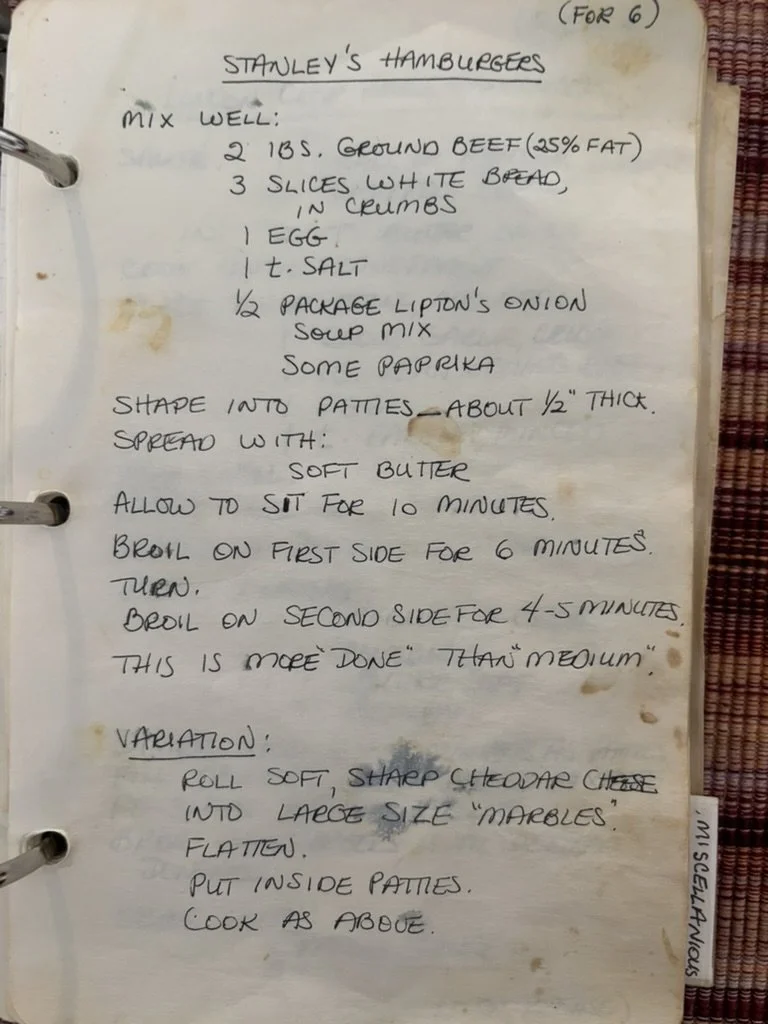 (FOR 6)
STANLEY'S HAMBURGERS
MIX WELL:
2 lBS. GROUND BEEF (25% FAT)
3 SLICES WHITE BREAD,
IN CRUMBS
1 EGG
1 t. SALT
1/2 PACKAGE LIPTON'S ONION
SOUP MIX
SOME PAPRIKA
SHAPE INTO PATTIES – ABOUT 1/2" THICK.
SPREAD WITH:
SOFT BUTTER
ALLOW TO SIT FOR 10 MINUTES.
BROIL ON FIRST SIDE FOR 6 MINUTES.
TURN.
BROIL ON SECOND SIDE FOR 4-5 MINUTES.
THIS IS MORE "DONE" THAN "MEDIUM".
VARIATION:
ROLL SOFT, SHARP CHEDDAR CHEESE
INTO LARGE SIZE "MARBLES".
FLATTEN.
PUT INSIDE PATTIES.
COOK AS ABOVE.
MISCELLANIOUS